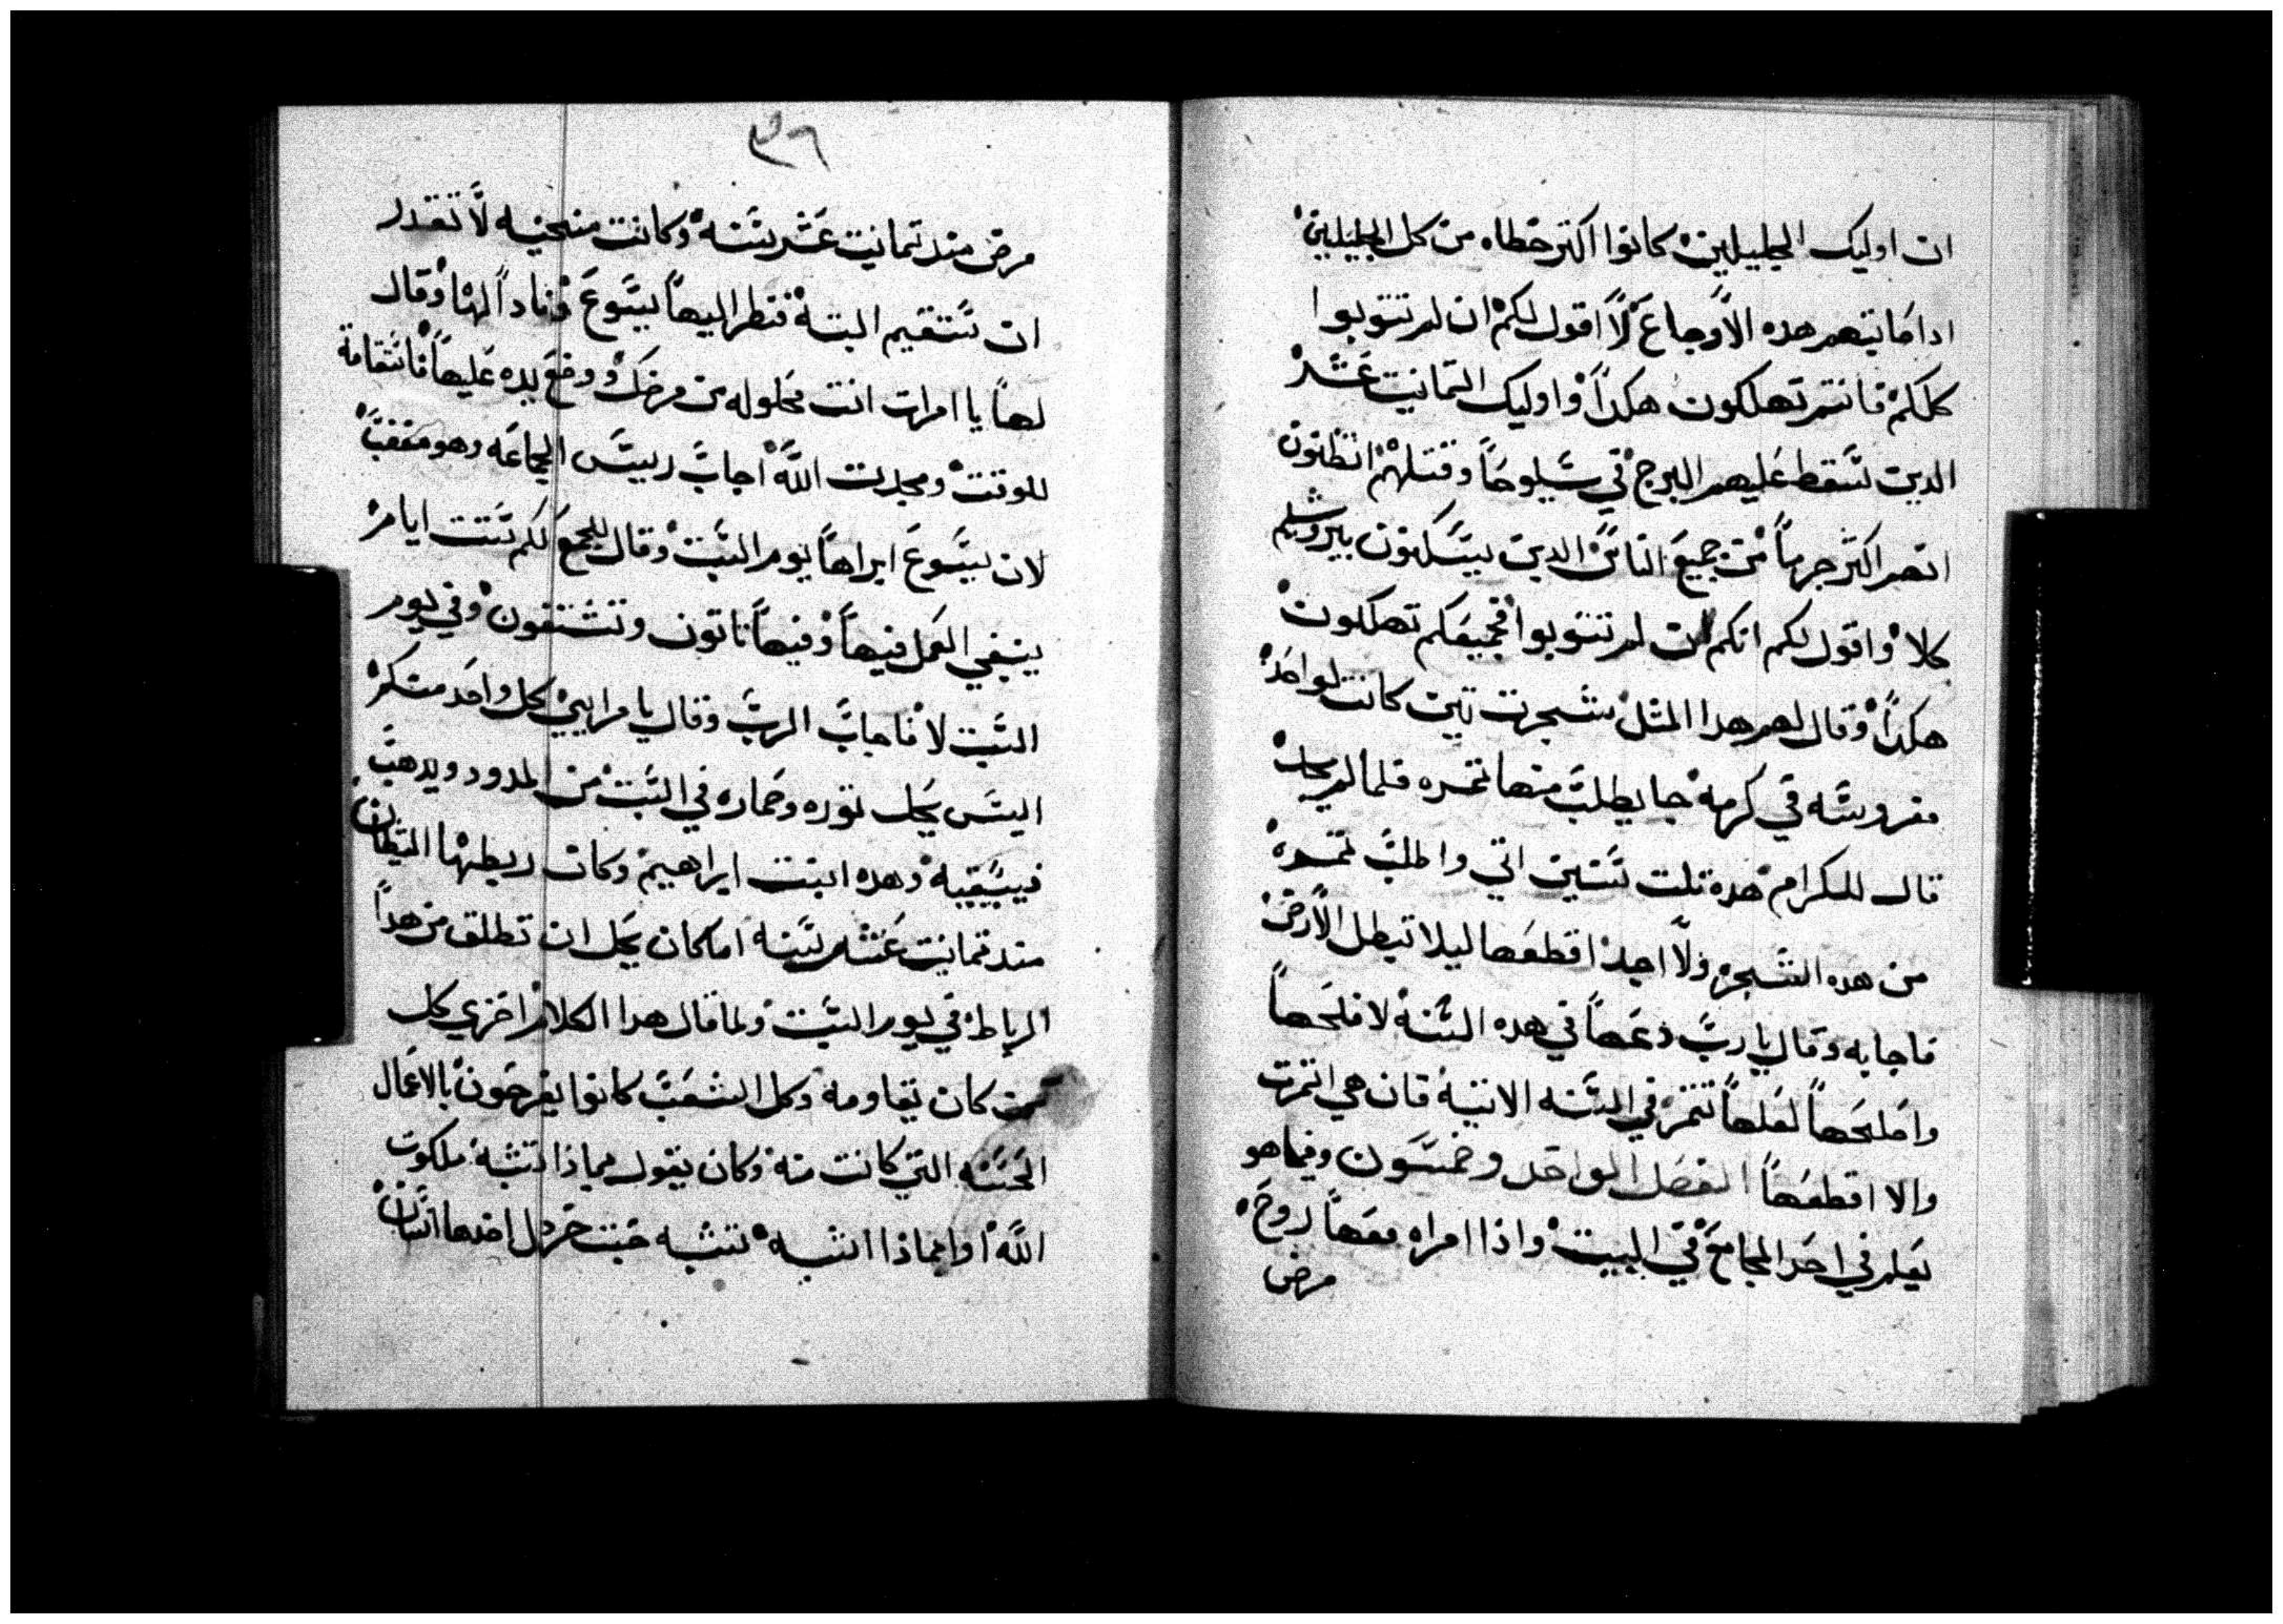 ان اوليك الجليليين كانوا اكتر خطاه من كل الجليليين
اداصابتهم هده الاوجاع لا اقول لكم ان لم تتوبوا
كلكم فانتم تهلكون هكدا واوليك التمانيت عشر
الدين سقط عليهم البرج في سيلوحا وقتلهم اتظنون
انهم اكتر جرما من جميع الناس الدين يسكنون بيروشليم
كلا واقول لكم انكم ان لم تتوبوا فجميعكم تهلكون
هكدا وقال لهم هدا المتل شجرت تين كانت لواحد
مغروسه في كرمه جا يطلب منها تمره فلما لم يجد
قال للكرام هده تلت سنين اتي واطلب تمره
من هده الشجره ولا اجد اقطعها ليلا تبطل الارض
فاجابه وقال يارب دعها في هده السنه لافلحها
واصلحها لعلها تتمر في السنه الاتيه فان هي اتمرت
والا اقطعها الفصل الواحد وخمسون وفيما هو
يعلم في احد المجامع في السبت واذا امراه معها روح
مرض
٣٦
مرض مند تمانيت عشر سنه وكانت منحنيه لا تقدر
ان تستقيم البته فنظر اليها يسوع وناداها وقال
لها يا امرات انت محلوله من مرضك ووضع يده عليها فاستقامة
للوقت ومجدت الله اجاب رييس الجماعه وهو مغضب
لان يسوع ابراها يوم السبت وقال للجمع لكم ستت ايام
ينبغي العمل فيها وفيها تاتون وتستشفون وفي يوم
السبت لا فاجاب الرب وقال يا مراييين كل واحد منكم
اليس يحل توره وحماره في السبت من المدود ويدهب
فيسقيه وهده ابنت ابراهيم وكان ربطها الشيطان
مند تمانيت عشر سنه اما كان يحل ان تطلق من هدا
الرباط في يوم السبت ولما قال هدا الكلام اخزي كل
من كان يقاومه وكل الشعب كانوا يفرحون بالاعمال
الحسنه التي كانت منه وكان يقول بماذا تشبه ملكوت
الله او بماذا اشبه تشبه حبت خردل اخدها انسان